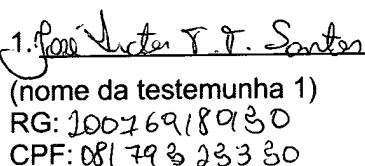 1. José Victor T. T. Santos
(nome da testemunha 1)
RG: 20076918930
CPF: 08179323330